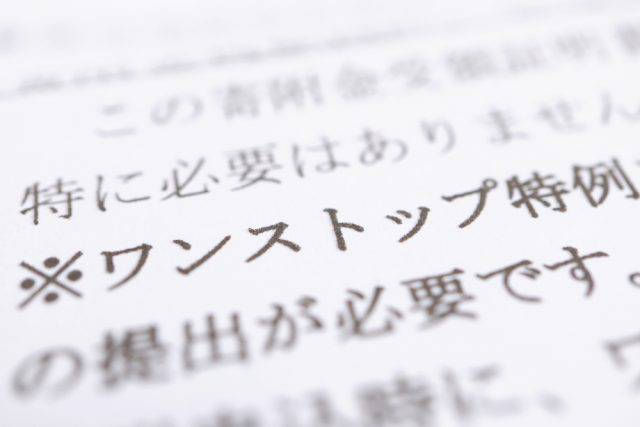 この寄附金受領証明
特に必要はありません
※ワンストップ特例
の提出が必要です。
時に、ワ